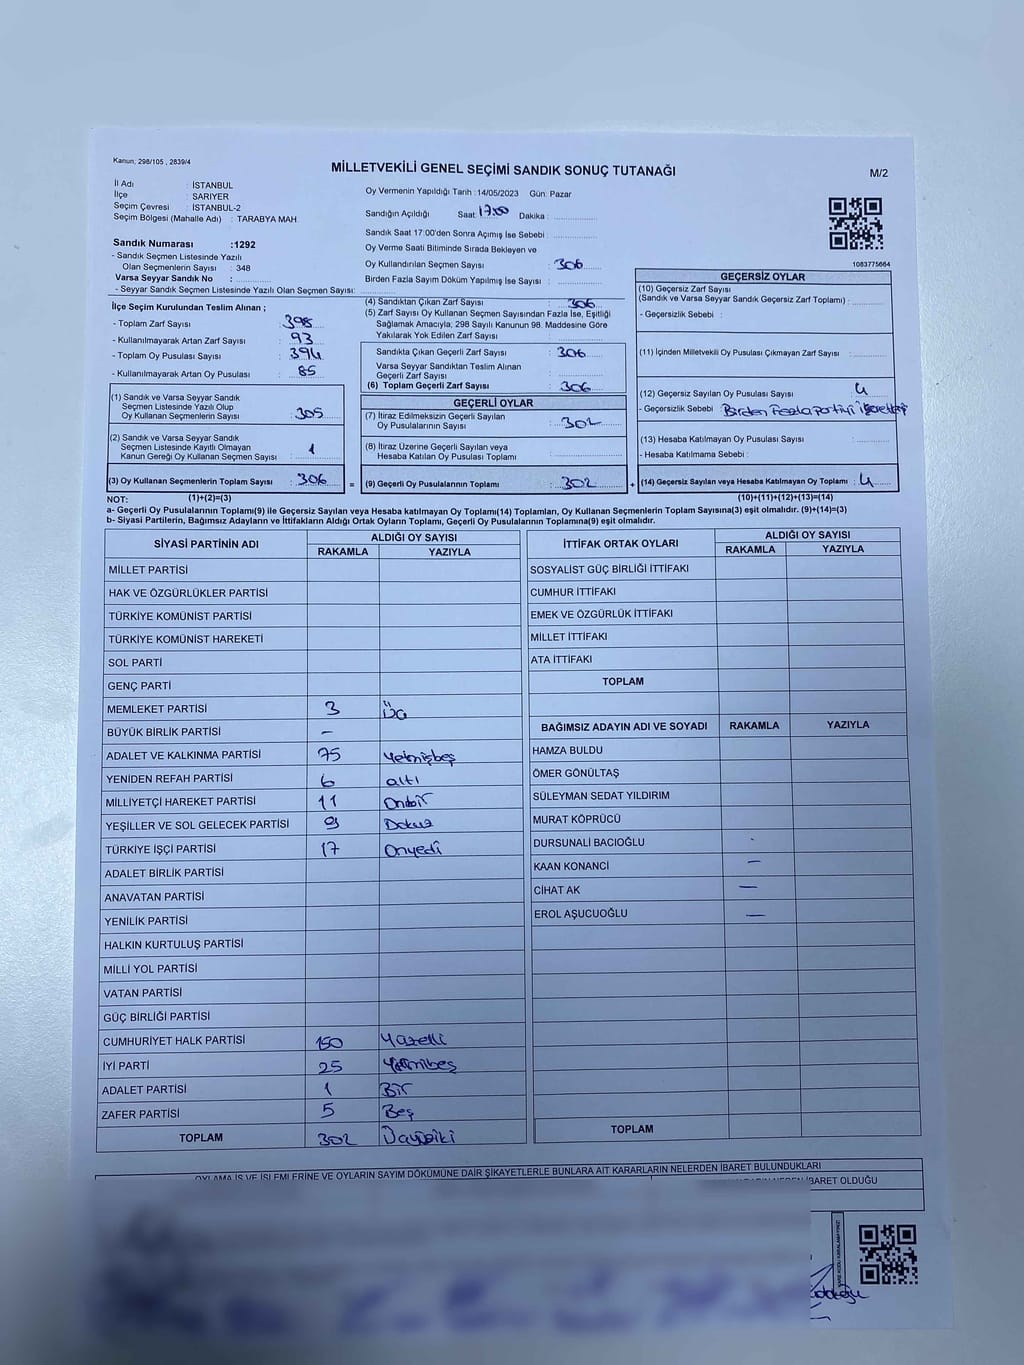 Kanun; 298/105 , 2839/4
MİLLETVEKİLİ GENEL SEÇİMİ SANDIK SONUÇ TUTANAĞI
M/2
İl Adı : İSTANBUL
İlçe : SARIYER
Seçim Çevresi : İSTANBUL-2
Seçim Bölgesi (Mahalle Adı) : TARABYA MAH.
Sandık Numarası :1292
- Sandık Seçmen Listesinde Yazılı
Olan Seçmenlerin Sayısı : 348
Varsa Seyyar Sandık No :
- Seyyar Sandık Seçmen Listesinde Yazılı Olan Seçmen Sayısı:
Oy Vermenin Yapıldığı Tarih :14/05/2023 Gün: Pazar
Sandığın Açıldığı Saat 17:00 Dakika :
Sandık Saat 17:00'den Sonra Açımış İse Sebebi :
Oy Verme Saati Bitiminde Sırada Bekleyen ve
Oy Kullandırılan Seçmen Sayısı : 306
Birden Fazla Sayım Döküm Yapılmış İse Sayısı :
1083775664
İlçe Seçim Kurulundan Teslim Alınan ;
- Toplam Zarf Sayısı : 398
- Kullanılmayarak Artan Zarf Sayısı : 93
- Toplam Oy Pusulası Sayısı : 394
- Kullanılmayarak Artan Oy Pusulası : 85
(1) Sandık ve Varsa Seyyar Sandık
Seçmen Listesinde Yazılı Olup
Oy Kullanan Seçmenlerin Sayısı : 305
(2) Sandık ve Varsa Seyyar Sandık
Seçmen Listesinde Kayıtlı Olmayan
Kanun Gereği Oy Kullanan Seçmen Sayısı : 1
(3) Oy Kullanan Seçmenlerin Toplam Sayısı : 306
(4) Sandıktan Çıkan Zarf Sayısı : 306
(5) Zarf Sayısı Oy Kullanan Seçmen Sayısından Fazla İse, Eşitliği
Sağlamak Amacıyla, 298 Sayılı Kanunun 98. Maddesine Göre
Yakılarak Yok Edilen Zarf Sayısı :
Sandıkta Çıkan Geçerli Zarf Sayısı : 306
Varsa Seyyar Sandıktan Teslim Alınan
Geçerli Zarf Sayısı :
(6) Toplam Geçerli Zarf Sayısı : 306
GEÇERLİ OYLAR
(7) İtiraz Edilmeksizin Geçerli Sayılan
Oy Pusulalarının Sayısı : 302
(8) İtiraz Üzerine Geçerli Sayılan veya
Hesaba Katılan Oy Pusulası Toplamı :
= (9) Geçerli Oy Pusulalarının Toplamı : 302
GEÇERSİZ OYLAR
(10) Geçersiz Zarf Sayısı
(Sandık ve Varsa Seyyar Sandık Geçersiz Zarf Toplamı) :
- Geçersizlik Sebebi :
(11) İçinden Milletvekili Oy Pusulası Çıkmayan Zarf Sayısı :
(12) Geçersiz Sayılan Oy Pusulası Sayısı : 4
- Geçersizlik Sebebi : Birden Fazla Partiyi
(13) Hesaba Katılmayan Oy Pusulası Sayısı :
- Hesaba Katılmama Sebebi :
+ (14) Geçersiz Sayılan veya Hesaba Katılmayan Oy Toplamı : 4
NOT: (1)+(2)=(3) (10)+(11)+(12)+(13)=(14)
a- Geçerli Oy Pusulalarının Toplamı(9) ile Geçersiz Sayılan veya Hesaba katılmayan Oy Toplamı(14) Toplamları, Oy Kullanan Seçmenlerin Toplam Sayısına(3) eşit olmalıdır. (9)+(14)=(3)
b- Siyasi Partilerin, Bağımsız Adayların ve İttifakların Aldığı Ortak Oyların Toplamı, Geçerli Oy Pusulalarının Toplamına(9) eşit olmalıdır.
SİYASİ PARTİNİN ADI ALDIĞI OY SAYISI
RAKAMLA YAZIYLA
MİLLET PARTİSİ
HAK VE ÖZGÜRLÜKLER PARTİSİ
TÜRKİYE KOMÜNİST PARTİSİ
TÜRKİYE KOMÜNİST HAREKETİ
SOL PARTİ
GENÇ PARTİ
MEMLEKET PARTİSİ 3 Üç
BÜYÜK BİRLİK PARTİSİ -
ADALET VE KALKINMA PARTİSİ 75 Yetmişbeş
YENİDEN REFAH PARTİSİ 6 altı
MİLLİYETÇİ HAREKET PARTİSİ 11 Onbir
YEŞİLLER VE SOL GELECEK PARTİSİ 9 Dokuz
TÜRKİYE İŞÇİ PARTİSİ 17 Onyedi
ADALET BİRLİK PARTİSİ
ANAVATAN PARTİSİ
YENİLİK PARTİSİ
HALKIN KURTULUŞ PARTİSİ
MİLLİ YOL PARTİSİ
VATAN PARTİSİ
GÜÇ BİRLİĞİ PARTİSİ
CUMHURİYET HALK PARTİSİ 150 Yüzelli
İYİ PARTİ 25
ADALET PARTİSİ 1 Bir
ZAFER PARTİSİ 5 Beş
TOPLAM 302
İTTİFAK ORTAK OYLARI ALDIĞI OY SAYISI
RAKAMLA YAZIYLA
SOSYALİST GÜÇ BİRLİĞİ İTTİFAKI
CUMHUR İTTİFAKI
EMEK VE ÖZGÜRLÜK İTTİFAKI
MİLLET İTTİFAKI
ATA İTTİFAKI
TOPLAM
BAĞIMSIZ ADAYIN ADI VE SOYADI RAKAMLA YAZIYLA
HAMZA BULDU
ÖMER GÖNÜLTAŞ
SÜLEYMAN SEDAT YILDIRIM
MURAT KÖPRÜCÜ
DURSUNALİ BACIOĞLU
KAAN KONANCİ —
CİHAT AK —
EROL AŞUCUOĞLU —
TOPLAM
OYLAMA İŞ VE İŞLEMLERİNE VE OYLARIN SAYIM DÖKÜMÜNE DAİR ŞİKAYETLERLE BUNLARA AİT KARARLARIN NELERDEN İBARET BULUNDUKLARI
İBARET OLDUĞU